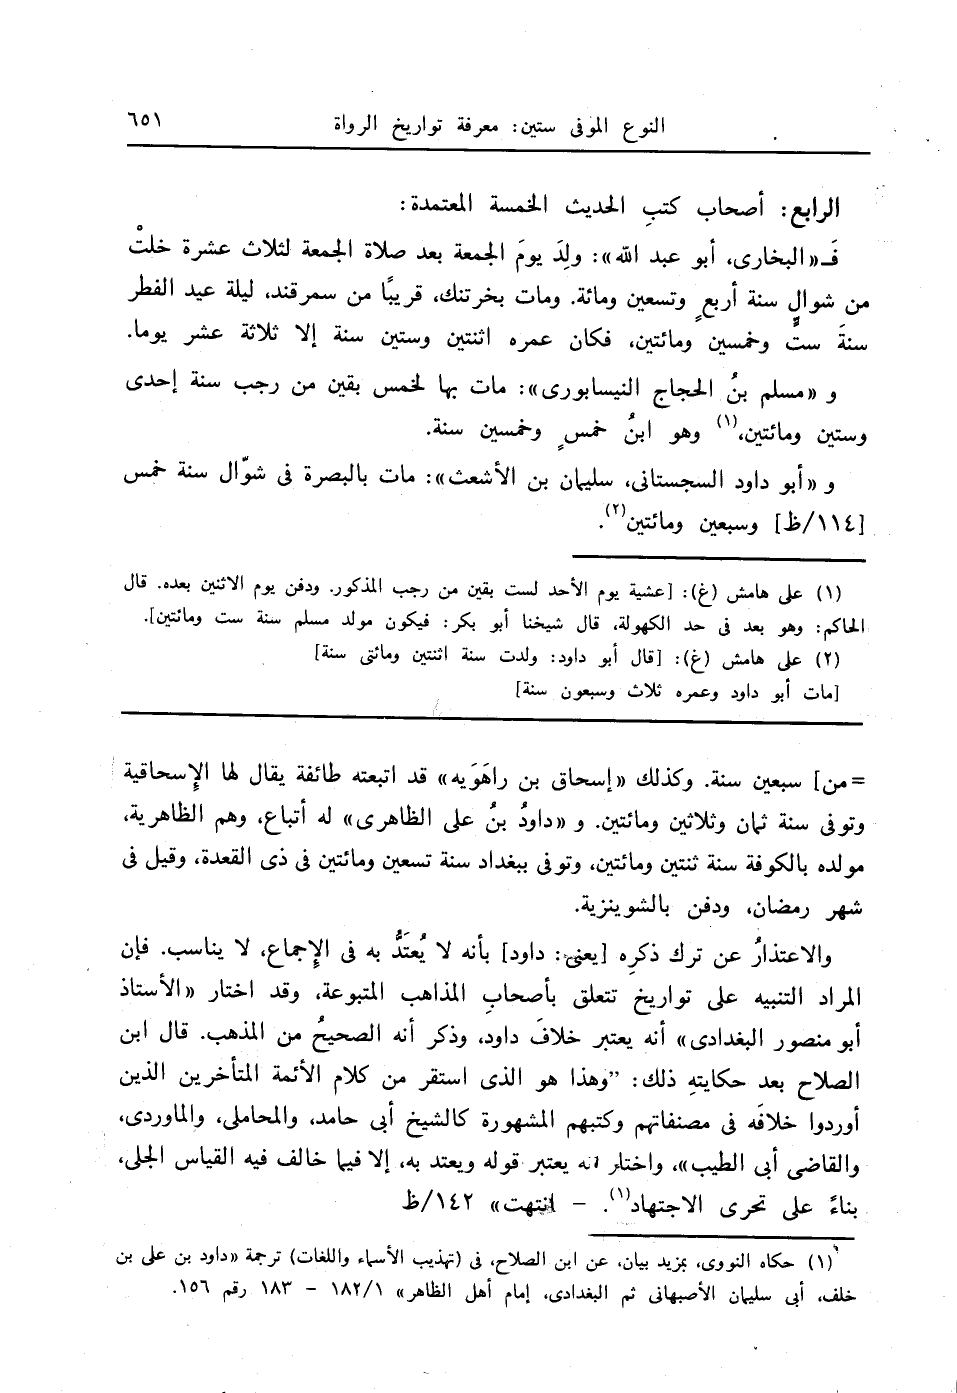 النوع الموفى ستين: معرفة تواريخ الرواة ٦٥١
الرابع: أصحاب كتبِ الحديث الخمسة المعتمدة:
فَـ«البخارى، أبو عبد الله»: ولِدَ يومَ الجمعة بعد صلاة الجمعة لثلاث عشرة خلتْ
من شوالٍ سنة أربعٍ وتسعين ومائة. ومات بخرتنك، قريبًا من سمرقند، ليلة عيد الفطر
سنةَ ستٍّ وخمسين ومائتين، فكان عمره اثنتين وستين سنة إلا ثلاثة عشر يوما.
و «مسلم بنُ الحجاج النيسابورى»: مات بها لخمس بقين من رجب سنة إحدى
وستين ومائتين،(١) وهو ابنُ خمسٍ وخمسين سنة.
و «أبو داود السجستانى، سليمان بن الأشعث»: مات بالبصرة فى شوّال سنة خمس
[١١٤/ظ] وسبعين ومائتين(٢).
(١) على هامش (غ): [عشية يوم الأحد لست بقين من رجب المذكور. ودفن يوم الاثنين بعده. قال
الحاكم: وهو بعد فى حد الكهولة، قال شيخنا أبو بكر: فيكون مولد مسلم سنة ست ومائتين].
(٢) على هامش (غ): [قال أبو داود: ولدت سنة اثنتين ومائتى سنة]
[مات أبو داود وعمره ثلاث وسبعون سنة]
=من] سبعين سنة. وكذلك «إسحاق بن راهَوَيه» قد اتبعته طائفة يقال لها الإسحاقية
وتوفى سنة ثمان وثلاثين ومائتين. و «داودُ بنُ على الظاهرى» له أتباع، وهم الظاهرية،
مولده بالكوفة سنة ثنتين ومائتين، وتوفى ببغداد سنة تسعين ومائتين فى ذى القعدة، وقيل فى
شهر رمضان، ودفن بالشوينزية.
والاعتذارُ عن ترك ذكرِه [يعنى: داود] بأنه لا يُعتَدُّ به فى الإجماع، لا يناسب. فإن
المراد التنبيه على تواريخ تتعلق بأصحابِ المذاهب المتبوعة، وقد اختار «الأستاذ
أبو منصور البغدادى» أنه يعتبر خلافَ داود، وذكر أنه الصحيحُ من المذهب. قال ابن
الصلاح بعد حكايتهِ ذلك: "وهذا هو الذى استقر من كلام الأئمة المتأخرين الذين
أوردوا خلافَه فى مصنفاتهم وكتبهم المشهورة كالشيخ أبى حامد، والمحاملى، والماوردى،
والقاضى أبى الطيب»، واختار أنه يعتبر قوله ويعتد به، إلا فيما خالف فيه القياس الجلى،
بناءً على تحرى الاجتهاد(١). - انتهت» ١٤٢/ظ
(١) حكاه النووى، بمزيد بيان، عن ابن الصلاح، فى (تهذيب الأسماء واللغات) ترجمة «داود بن على بن
خلف، أبى سليمان الأصبهانى ثم البغدادى، إمام أهل الظاهر» ١٨٢/١ - ١٨٣ رقم ١٥٦.